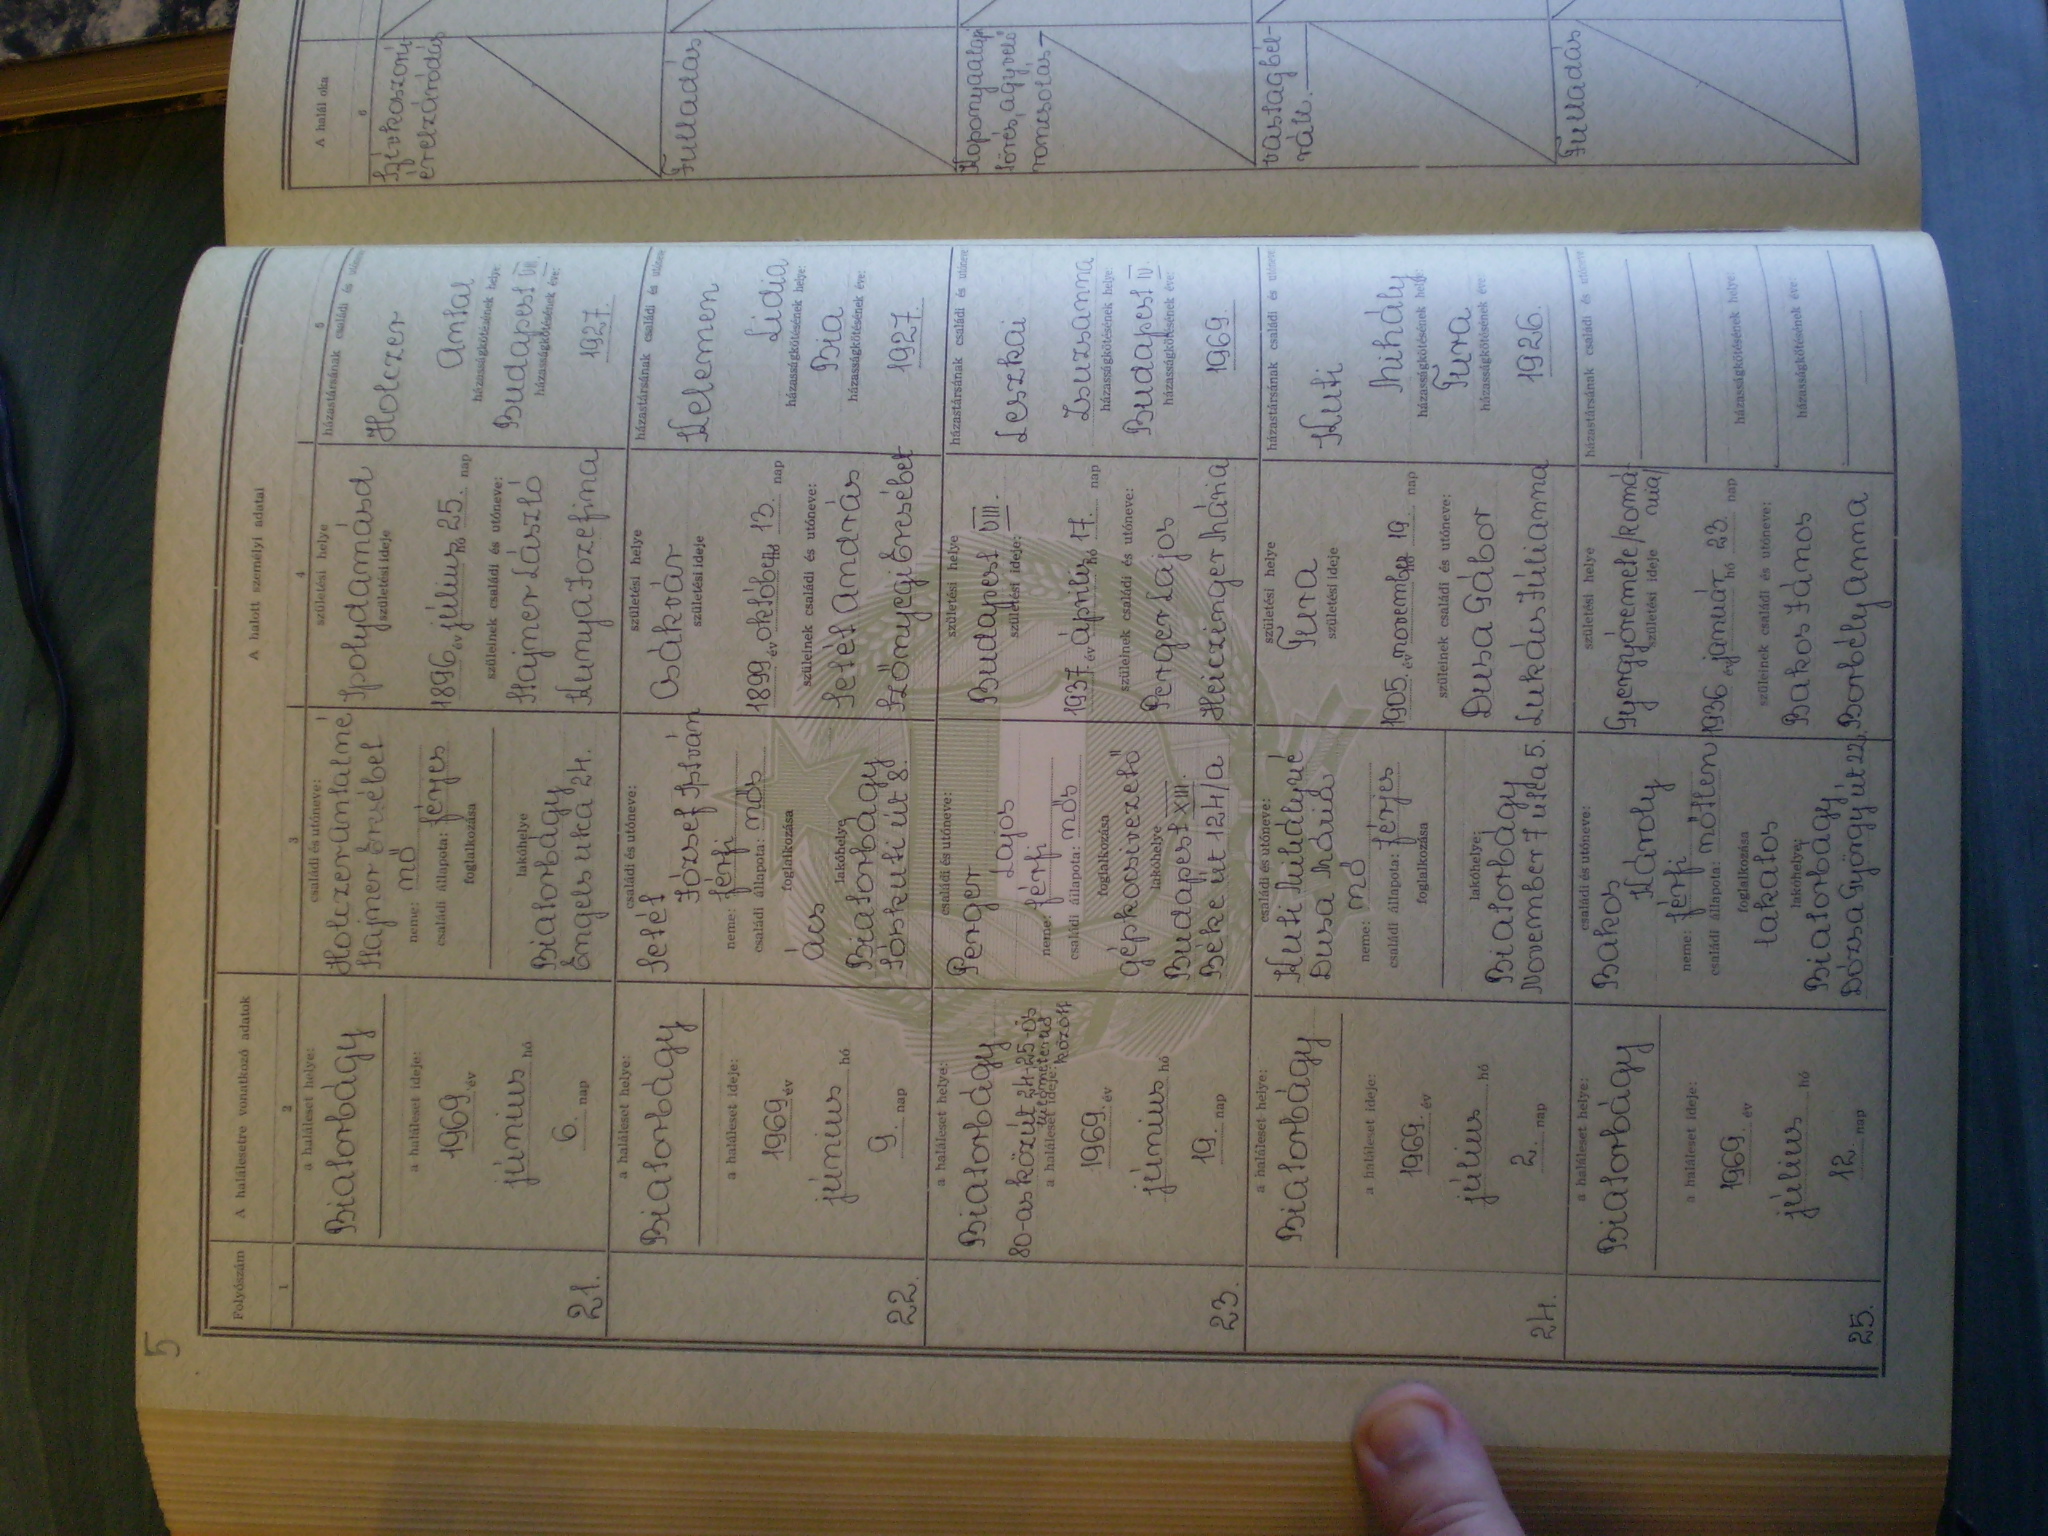 5
Folyószám
A halálesetre vonatkozó adatok
A halott személyi adatai
A halál oka
1
2
3
4
5
6
21.
a haláleset helye:
Biatorbágy
a haláleset ideje:
1969. év
június hó
6. nap
családi és utóneve:
Holczer Antalné
Hajmer Erzsébet
neme: nő
családi állapota: férjes
foglalkozása
lakóhelye
Biatorbágy
Engels utca 24.
születési helye
Ipolydamásd
születési ideje
1896. év július hó 25. nap
szüleinek családi és utóneve:
Hajmer László
Kunya Jozefina
házastársának családi és utóneve
Holczer
Antal
házasságkötésének helye:
Budapest VIII.
házasságkötésének éve:
1927.
Szívkoszorú-
érelzáródás
22.
a haláleset helye:
Biatorbágy
a haláleset ideje:
1969. év
június hó
9. nap
családi és utóneve:
Setét
József István
neme: férfi
családi állapota: nős
foglalkozása
ács
lakóhelye
Biatorbágy
Sóskúti út 8.
születési helye
Csákvár
születési ideje
1899. év október hó 13. nap
szüleinek családi és utóneve:
Setét András
Szőnyegi Erzsébet
házastársának családi és utóneve
Kelemen
Lidia
házasságkötésének helye:
Bia
házasságkötésének éve:
1927.
Fulladás
23.
a haláleset helye:
Biatorbágy
80-as közút 24-25-ös
között
a haláleset ideje:
1969. év
június hó
19. nap
családi és utóneve:
Perger
Lajos
neme: férfi
családi állapota: nős
foglalkozása
gépkocsivezető
lakóhelye
Budapest XIII.
Béke út 124/a
születési helye
Budapest VIII.
születési ideje:
1937. év április hó 17. nap
szüleinek családi és utóneve:
Perger Lajos
Heiczinger Mária
házastársának családi és utóneve
Leszkai
Zsuzsanna
házasságkötésének helye:
Budapest IV.
házasságkötésének éve:
1969.
Koponyaalapi
törés, agyvelő
roncsolás
24.
a haláleset helye:
Biatorbágy
a haláleset ideje:
1969. év
július hó
2. nap
családi és utóneve:
Kuti Mihályné
Dusa Mária
neme: nő
családi állapota: férjes
foglalkozása
lakóhelye:
Biatorbágy
November 7 utca 5.
születési helye
Tura
születési ideje
1905. év november hó 19. nap
szüleinek családi és utóneve:
Dusa Gábor
Lukács Julianna
házastársának családi és utóneve
Kuti
Mihály
házasságkötésének helye:
Tura
házasságkötésének éve:
1926.
vastagbél-
rák.
25.
a haláleset helye:
Biatorbágy
a haláleset ideje:
1969. év
július hó
12. nap
családi és utóneve:
Bakos
Károly
neme: férfi
családi állapota: nőtlen
foglalkozása
lakatos
lakóhelye:
Biatorbágy
Dózsa György út 22.
születési helye
Gyergyóremete/Romá-
nia/
születési ideje
1936 év január hó 23. nap
szüleinek családi és utóneve:
Bakos János
Borbély Anna
házastársának családi és utóneve
házasságkötésének helye:
házasságkötésének éve:
Fulladás